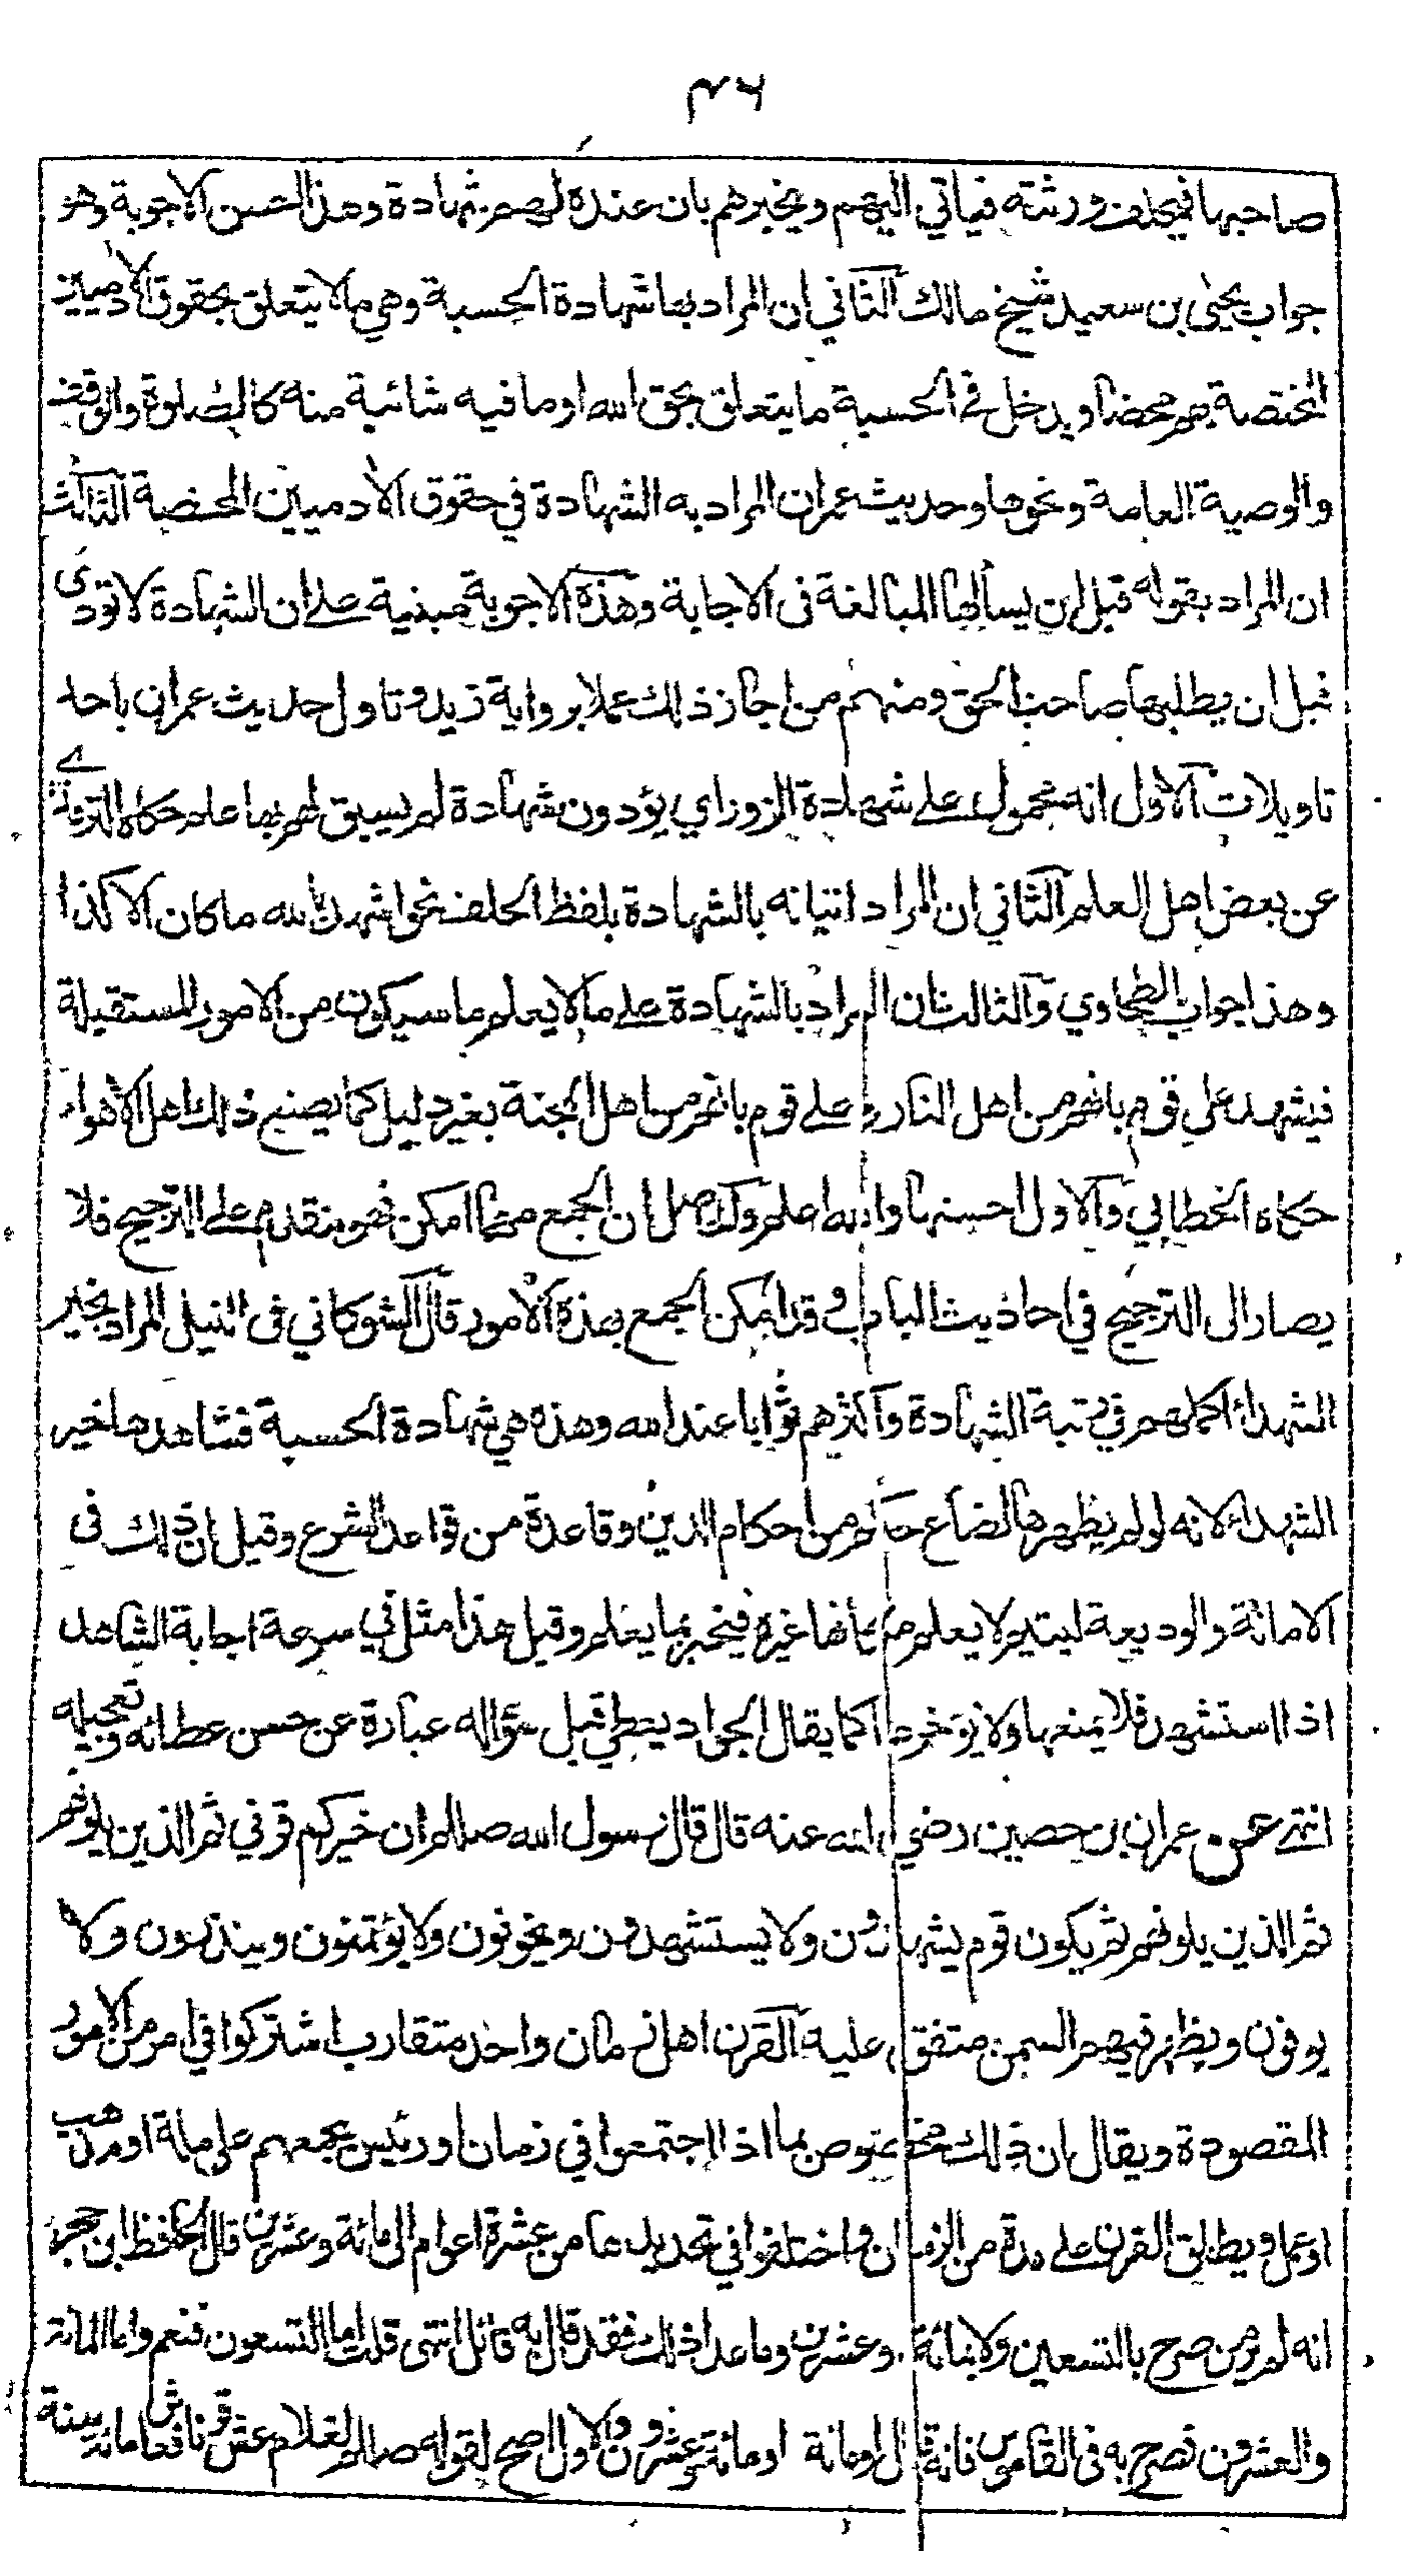 ٤٦
صاحبها فيخلف ورثته فياتي اليهم ويخبرهم بان عنده لهم شهادة وهذا احسن الاجوبة وهو
جواب يحيى بن سعيد شيخ مالك الثاني ان المراد بها شهادة الحسبة وهي ما لا يتعلق بحقوق الادميين
المختصة بهم محضا ويدخل في الحسبة ما يتعلق بحق الله او ما فيه شائبة منه كالصلوة والوقف
والوصية العامة ونحوها وحديث عمران المراد به الشهادة في حقوق الادميين المحضة الثالث
ان المراد بقوله قبل ان يسألها المبالغة فى الاجابة وهذه الاجوبة مبنية على ان الشهادة لا تودى
قبل ان يطلبها صاحب الحق ومنهم من اجاز ذلك عملا برواية زيد وتاول حديث عمران باحد
تاويلات الاول انه محمول على شهادة الزور اي يؤدون شهادة لم يسبق لهم بها علم حكاه الترمذي
عن بعض اهل العلم الثاني ان المراد اتيانه بالشهادة بلفظ الحلف نحو اشهد بالله ما كان الا كذا
وهذا جواب الطحاوي والثالث ان المراد بالشهادة على ما لا يعلم ما سيكون من الامور المستقبلة
فيشهد على قوم بانهم من اهل النار وعلى قوم بانهم من اهل الجنة بغير دليل كما يصنع ذلك اهل الاهواء
حكاه الخطابي والاول احسنها والله اعلم والحاصل ان الجمع مهما امكن فهو مقدم على الترجيح فلا
يصار الى الترجيح في احاديث الباب وقد امكن الجمع بهذه الامور قال الشوكاني فى النيل المراد بخير
الشهداء اكملهم في رتبة الشهادة واكثرهم ثوابا عند الله وهذه هي شهادة الحسبة فشاهدها خير
الشهداء لانه لو لم يظهرها لضاع حكم من احكام الدين وقاعدة من قواعد الشرع وقيل ان ذلك فى
الامانة والوديعة ليتيم لا يعلم مكانها غيره فيخبر بما يعلم وقيل هذا مثل في سرعة اجابة الشاهد
اذا استشهد فلا يمنعها ولا يؤخرها كما يقال الجواد يعطي قبل سؤاله عبارة عن حسن عطائه وتعجيله
انتهى عن عمران بن حصين رضي الله عنه قال قال رسول الله صللم ان خيركم قرني ثم الذين يلونهم
ثم الذين يلونهم ثم يكون قوم يشهدون ولا يستشهدون ويخونون ولا يؤتمنون وينذرون ولا
يوفون ويظهر فيهم السمن متفق عليه القرن اهل زمان واحد متقارب اشتركوا في امر من الامور
المقصودة ويقال ان ذلك مخصوص بما اذا اجتمعوا في زمان او رئيس يجمعهم على ملة او مذهب
او عمل ويطلق القرن على مدة من الزمان واختلفوا في تحديدها من عشرة اعوام الى مائة وعشرين قال الحافظ ابن حجر
انه لم ير من صرح بالتسعين ولا بمائة وعشرين وما عدا ذلك فقد قال به قائل انتهى قلت اما التسعون فنعم واما المائة
والعشرون فصرح به فى القاموس فانه قال او مائة او مائة وعشرون والاول اصح لقوله صللم لغلام عش قرنا فعاش مائة سنة